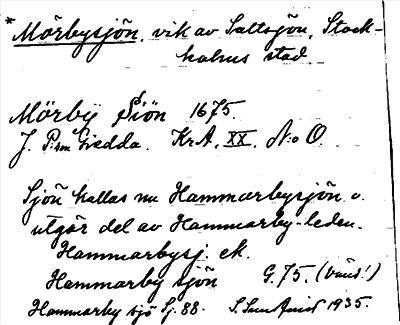 * Mörbysjön, vik av Saltsjön, Stock-
holms stad
Mörby Siön 1675.
J. P:son Giedda. KrA. XX. N:o O.
Sjön kallas nu Hammarbysjön o.
utgör del av Hammarby-leden.
Hammarbysj. ek.
Hammarby sjön G.75. (vaus!)
Hammarby sjö Sj. 88. 1935.